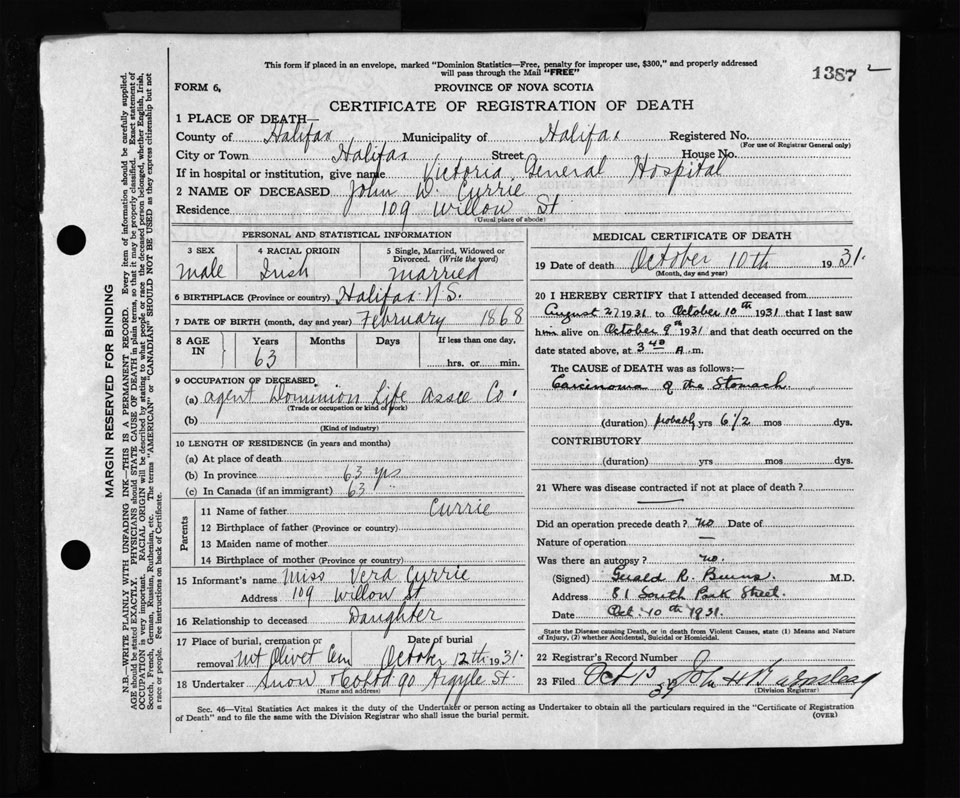 This form if placed in an envelope, marked "Dominion Statistics—Free, penalty for improper use, $300," and properly addressed
will pass through the Mail "FREE"
1387 2
FORM 6,
PROVINCE OF NOVA SCOTIA
CERTIFICATE OF REGISTRATION OF DEATH
1 PLACE OF DEATH—
County of Halifax Municipality of Halifax Registered No.
(For use of Registrar General only)
City or Town Halifax Street House No.
If in hospital or institution, give name Victoria General Hospital
2 NAME OF DECEASED John W. Currie
Residence 109 Willow St
(Usual place of abode)
PERSONAL AND STATISTICAL INFORMATION
3 SEX 4 RACIAL ORIGIN 5 Single, Married, Widowed or Divorced. (Write the word)
male Irish married
6 BIRTHPLACE (Province or country) Halifax N.S.
7 DATE OF BIRTH (month, day and year) February 1868
8 AGE IN Years Months Days If less than one day,
63 hrs. or min.
9 OCCUPATION OF DECEASED
(a) agent Dominion Life Assce Co.
(Trade or occupation or kind of work)
(b)
(Kind of industry)
10 LENGTH OF RESIDENCE (in years and months)
(a) At place of death
(b) In province 63 yrs
(c) In Canada (if an immigrant) 63
Parents
11 Name of father Currie
12 Birthplace of father (Province or country)
13 Maiden name of mother
14 Birthplace of mother (Province or country)
15 Informant's name Miss Vera Currie
Address 109 Willow St
16 Relationship to deceased Daughter
17 Place of burial, cremation or removal Mt Olivet Cem Date of burial October 12th 1931.
18 Undertaker Snow & Co Ltd. 90 Argyle St.
(Name and address)
MEDICAL CERTIFICATE OF DEATH
19 Date of death October 10th 1931.
(Month, day and year)
20 I HEREBY CERTIFY that I attended deceased from
August 27 1931 to October 10th 1931 that I last saw
him alive on October 9th 1931 and that death occurred on the
date stated above, at 3 40 A. m.
The CAUSE of DEATH was as follows:—
Carcinoma of the Stomach.
(duration) probably yrs 6 1/2 mos dys.
CONTRIBUTORY
(duration) yrs mos dys.
21 Where was disease contracted if not at place of death?
Did an operation precede death? no Date of
Nature of operation —
Was there an autopsy? no.
(Signed) Gerald R. Burns. M.D.
Address 81 South Park Street.
Date Oct. 10th 1931.
State the Disease causing Death, or in death from Violent Causes, state (1) Means and Nature of Injury, (2) whether Accidental, Suicidal or Homicidal.
22 Registrar's Record Number
23 Filed Oct 13 31 John H
(Division Registrar)
Sec. 46—Vital Statistics Act makes it the duty of the Undertaker or person acting as Undertaker to obtain all the particulars required in the "Certificate of Registration
of Death" and to file the same with the Division Registrar who shall issue the burial permit.
(OVER)
MARGIN RESERVED FOR BINDING
N.B.—WRITE PLAINLY WITH UNFADING INK—THIS IS A PERMANENT RECORD. Every item of information should be carefully supplied.
AGE should be stated EXACTLY. PHYSICIANS should STATE CAUSE OF DEATH in plain terms, so that it may be properly classified. Exact statement of
OCCUPATION is very important. RACIAL ORIGIN will be described by stating to what people or race the deceased person belonged, whether English, Irish,
Scotch, French, German, Russian, Ruthenian, etc. The terms "AMERICAN" or "CANADIAN" SHOULD NOT BE USED as they express citizenship but not
a race or people. Fee instructions on back of Certificate.